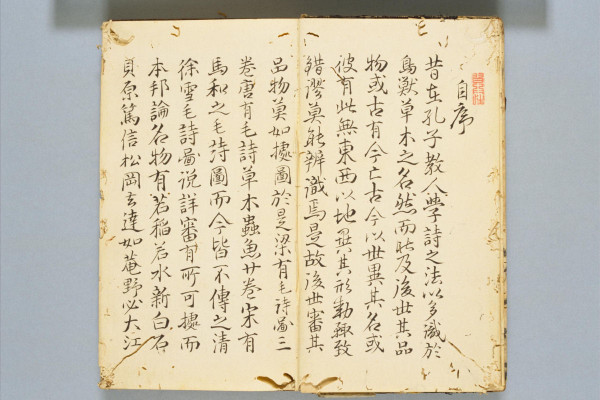 自序
昔在孔子教人學詩之法以多識於
鳥獸草木之名然而時及後世其品
物或古有今亡古今以世異其名或
彼有此無東西以地異其形動輒致
錯謬莫能辨識焉是故後世審其
品物莫如據圖於是梁有毛詩圖三
卷唐有毛詩草木蟲魚廿卷宋有
馬和之毛詩圖而今皆不傳之清
徐雪毛詩圖说詳審有所可據而
本邦論名物有若稲若水新白石
貝原篤信松岡玄達如菴野必大江